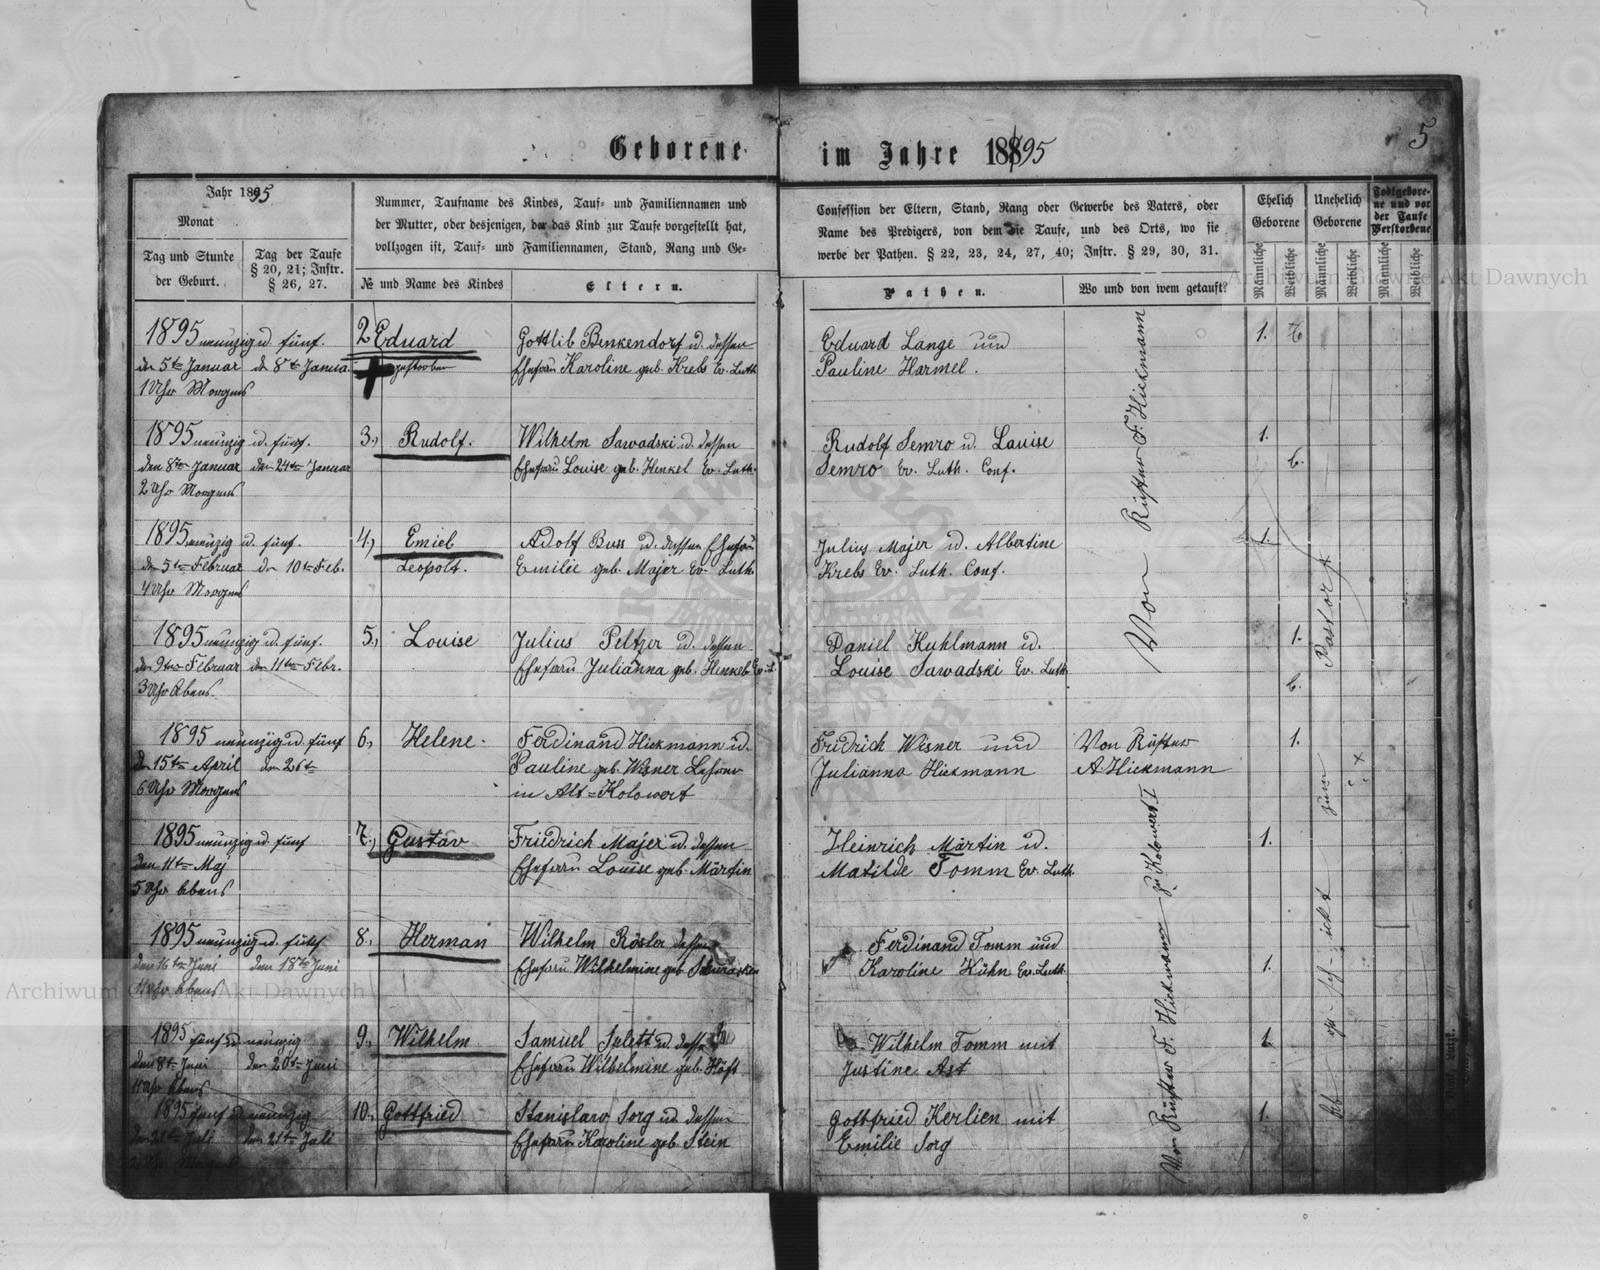 5
Geborene im Jahre 1895
Jahr 1895
Monat
Tag und Stunde
der Geburt.
Tag der Taufe
§ 20, 21; Instr.
§ 26, 27.
Nummer, Taufname des Kindes, Tauf- und Familiennamen und
der Mutter, oder desjenigen, der das Kind zur Taufe vorgestellt hat,
vollzogen ist, Tauf- und Familiennamen, Stand, Rang und Ge-
№ und Name des Kindes
Eltern.
Confession der Eltern, Stand, Rang oder Gewerbe des Vaters, oder
Name des Predigers, von dem die Taufe, und des Orts, wo sie
werbe der Pathen. § 22, 23, 24, 27, 40; Instr. § 29, 30, 31.
Pathen.
Wo und von wem getauft?
Ehelich
Geborene
Unehelich
Geborene
Todtgebore-
ne und vor
der Taufe
Verstorbene
Männliche
Weibliche
Männliche
Weibliche
Männliche
Weibliche
1895 neunzig u. fünf.
den 5ten Januar den 8ten Janua
1 Uhr Morgens
2 Eduard
gestorben
Gottlib Benkendorf u. dessen
Ehefrau Karoline geb. Krebs Ev. Luth
Eduard Lange und
Pauline Harmel.
1.
1895 neunzig u. fünf.
den 8ten Januar den 24ten Januar
2 Uhr Morgens
3., Rudolf.
Wilhelm Sawadski u. dessen
Ehefrau Louise geb. Henkel Ev. Luth.
Rudolf Semro u. Lauise
Semro Ev. Luth. Conf.
1.
1895 neunzig u. fünf.
den 5ten Februar den 10ten Feb.
4 Uhr Morgens
4., Emiel
Leopolt.
Adolf Buss u. dessen Ehefrau
Emilie geb. Majer Ev. Luth.
Julius Majer u. Albertine
Krebs Ev. Luth. Conf.
1.
1895 neunzig u. fünf.
den 9ten Februar den 11ten Febr.
3 Uhr Abens
5., Louise
Julius Peltzer u. dessen
Ehefrau Julianna geb. Henkel Ev. L.
Daniel Kuhlmann u.
Louise Sawadski Ev. Luth
1.
Von Küster F. Hickmann
Pastor
1895 neunzig u. fünf
den 15ten April den 26ten
6 Uhr Morgens
6., Helene
Ferdinand Hickmann u.
Pauline geb. Wisner Lehrer
in Alt=Kolowert
Fridrich Wisner und
Julianna Hickmann
Von Küster
A. Hickmann
1.
1895 neunzig u. fünf
den 11ten Maj
5 Uhr Abens
7., Gustav
Friedrich Majer u. dessen
Ehefrau Louise geb. Märtin
Heinrich Märtin u.
Matilde Tomm Ev. Luth.
1.
1895 neunzig u. fünf
den 16ten Juni den 18ten Juni
11 Uhr Abens
8., Herman
Wilhelm Rösler dessen
Ehefrau Wilhelmine geb.
Ferdinand Tomm und
Karoline Kühn Ev. Luth
1.
1895 fünf u. neunzig
den 8ten Juni den 20ten Juni
11 Uhr Abens
9., Wilhelm
Samuel Sulett u. dessen
Ehefrau Wilhelmine geb. Höft
Wilhelm Tomm mit
Justine Ast
1.
1895 fünf u. neunzig
den 21ten Juli den 21ten Juli
2 Uhr Morgens
10., Gottfried
Stanislaw Sorg u. dessen
Ehefrau Karoline geb. Stein
Gottfried Kerlien mit
Emilie Sorg
1.
Von Küster F. Hickmann zu Kolowert I
Archiwum Główne Akt Dawnych
Archiwum Główne Akt Dawnych